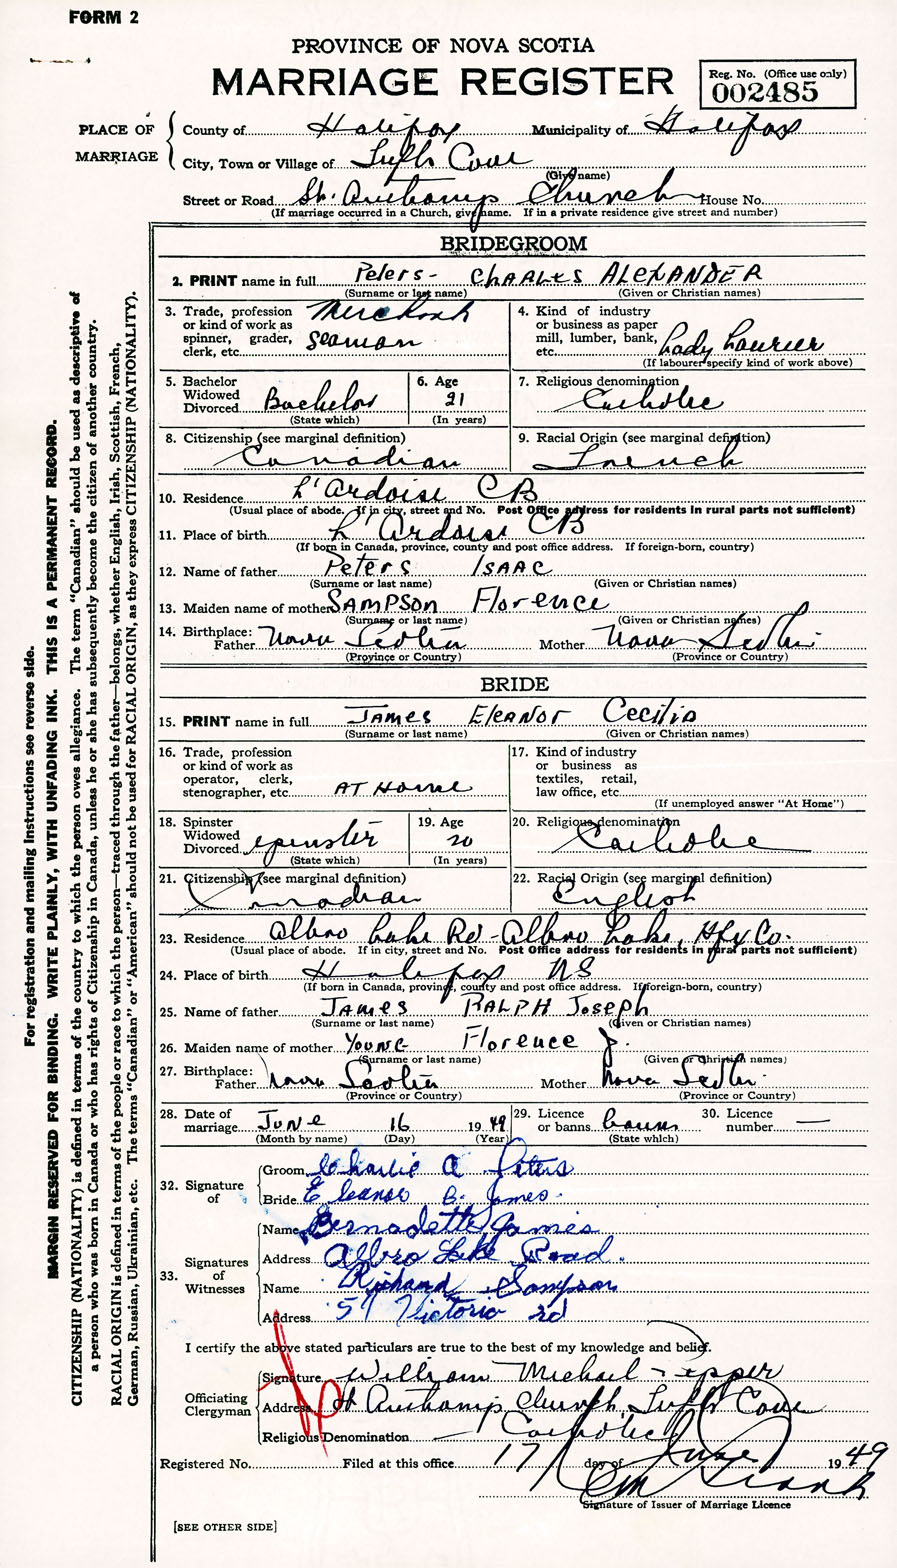 FORM 2
PROVINCE OF NOVA SCOTIA
MARRIAGE REGISTER
Reg. No. (Office use only)
002485
PLACE OF MARRIAGE
County of Halifax Municipality of Halifax
City, Town or Village of Tufts Cove
(Give name)
Street or Road St. Church House No.
(If marriage occurred in a Church, give name. If in a private residence give street and number)
BRIDEGROOM
2. PRINT name in full Peters - CHARLES ALEXANDER
(Surname or last name) (Given or Christian names)
3. Trade, profession or kind of work as spinner, grader, clerk, etc. Merchant Seaman
4. Kind of industry or business as paper mill, lumber, bank, etc. Lady Laurier
(If labourer specify kind of work above)
5. Bachelor Widowed Divorced Bachelor
(State which)
6. Age 21
(In years)
7. Religious denomination Catholic
8. Citizenship (see marginal definition) Canadian
9. Racial Origin (see marginal definition) French
10. Residence L'Ardoise CB
(Usual place of abode. If in city, street and No. Post Office address for residents in rural parts not sufficient)
11. Place of birth L'Ardoise CB
(If born in Canada, province, county and post office address. If foreign-born, country)
12. Name of father Peters ISAAC
(Surname or last name) (Given or Christian names)
13. Maiden name of mother SAMPSON Florence
(Surname or last name) (Given or Christian names)
14. Birthplace: Father Nova Scotia Mother Nova Scotia
(Province or Country) (Province or Country)
BRIDE
15. PRINT name in full JAMES ELEANOR Cecilia
(Surname or last name) (Given or Christian names)
16. Trade, profession or kind of work as operator, clerk, stenographer, etc. AT HOME
17. Kind of industry or business as textiles, retail, law office, etc.
(If unemployed answer "At Home")
18. Spinster Widowed Divorced spinster
(State which)
19. Age 20
(In years)
20. Religious denomination Catholic
21. Citizenship (see marginal definition) Canadian
22. Racial Origin (see marginal definition) English
23. Residence Albro Lake Rd - Albro Lake, Hfx Co.
(Usual place of abode. If in city, street and No. Post Office address for residents in rural parts not sufficient)
24. Place of birth Halifax NS
(If born in Canada, province, county and post office address. If foreign-born, country)
25. Name of father JAMES RALPH JOSEPH
(Surname or last name) (Given or Christian names)
26. Maiden name of mother YOUNG Florence J.
(Surname or last name) (Given or Christian names)
27. Birthplace: Father Nova Scotia Mother Nova Scotia
(Province or Country) (Province or Country)
28. Date of marriage JUNE 16 1949
(Month by name) (Day) (Year)
29. Licence or banns banns
(State which)
30. Licence number —
32. Signature of
Groom Charlie A Peters
Bride Eleanor C. James
33. Signatures of Witnesses
Name Bernadette James
Address Albro Lake Road.
Name Richard Sampson
Address 57 Victoria rd
I certify the above stated particulars are true to the best of my knowledge and belief.
Officiating Clergyman
Signature William Michael
Address St Church, Tufts Cove
Religious Denomination Catholic
Registered No. Filed at this office 17 day of June 1949
Signature of Issuer of Marriage Licence
[SEE OTHER SIDE]
For registration and mailing instructions see reverse side.
MARGIN RESERVED FOR BINDING. WRITE PLAINLY, WITH UNFADING INK. THIS IS A PERMANENT RECORD.
CITIZENSHIP (NATIONALITY) is defined in terms of the country to which the person owes allegiance. The term "Canadian" should be used as descriptive of
a person who was born in Canada or who has rights of Citizenship in Canada, unless he or she has subsequently become the citizen of another country.
RACIAL ORIGIN is defined in terms of the people or race to which the person—traced through the father—belongs, whether English, Irish, Scottish, French,
German, Russian, Ukrainian, etc. The terms "Canadian" or "American" should not be used for RACIAL ORIGIN, as they express CITIZENSHIP (NATIONALITY).